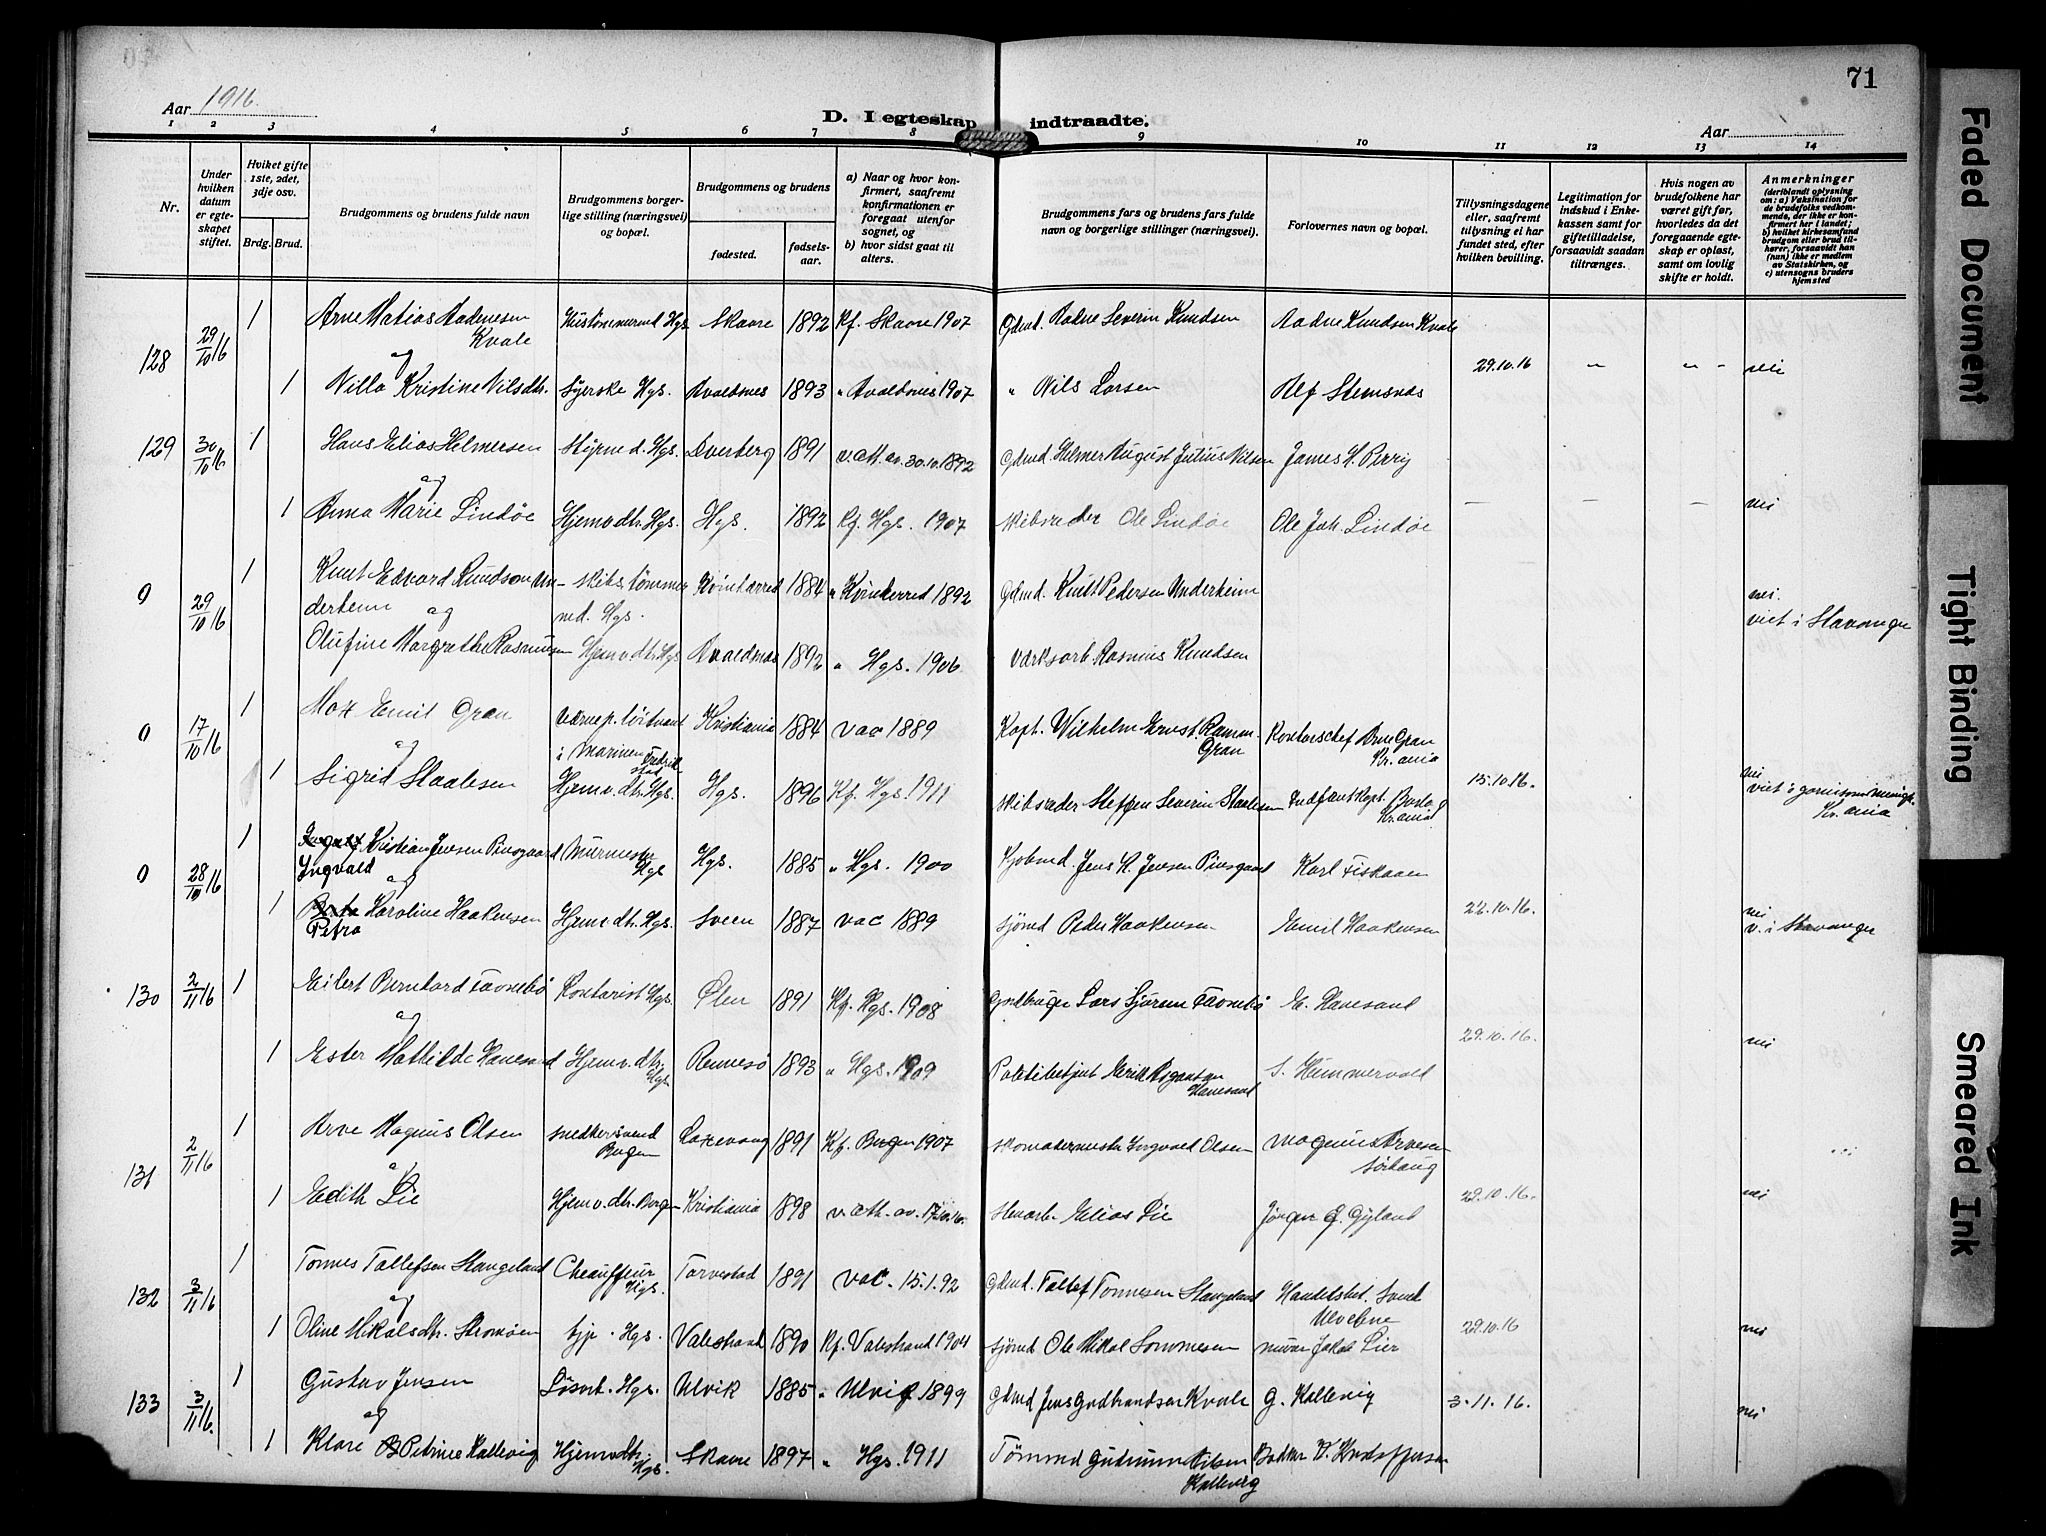 71
Aar 1916.
D. I egteskap indtraadte.
Aar
1 2 3 4 5 6 7 8 9 10 11 12 13 14
Nr.
Under hvilken datum er egteskapet stiftet.
Hviket gifte 1ste, 2det, 3dje osv.
Brdg. Brud.
Brudgommens og brudens fulde navn
Brudgommens borgerlige stilling (næringsvei) og bopæl.
Brudgommens og brudens
fødested.
fødselsaar.
a) Naar og hvor konfirmert, saafremt konfirmationen er foregaat utenfor sognet, og
b) hvor sidst gaat til alters.
Brudgommens fars og brudens fars fulde navn og borgerlige stillinger (næringsvei).
Forlovernes navn og bopæl.
Tillysningsdagene eller, saafremt tillysning ei har fundet sted, efter hvilken bevilling.
Legitimation for indskud i Enkekassen samt for giftetilladelse, forsaavidt saadan tiltrænges.
Hvis nogen av brudefolkene har været gift før, hvorledes da det foregaaende egteskap er opløst, samt om lovlig skifte er holdt.
Anmerkninger
(deriblandt oplysning om: a) Vaksination for de brudefolks vedkommende, der ikke er konfirmert her i landet;
b) hvilket kirkesamfund brudgom eller brud tilhører, forsaavidt han (nun) ikke er medlem av Statskirken, og
c) utensogns bruders hjemsted
128 29/10 16 1 Arne Matias Aadnesen Kvale Hgs. Skaare 1892 Kf. Skaare 1907 Gdmd. Aadne Severin Knudsen Aadne Knudsen Kvale
og 29.10.16 nei
1 Nilla Kristine Nilsdtr. Syerske Hgs. Avaldsnes 1893 " Avaldsnes 1907 " Nils Larsen Alf Stemsnes
129 30/10 16 1 Hans Elias Helmersen Styrmd. Hgs. Dverberg 1891 v. att. av. 30.10.1892 Gdmd. Helmer August Julius Nilsen James H. Perry
og nei
1 Anna Marie Lindøe Hjemv. dtr. Hgs. Hgs. 1892 Kf. Hgs. 1907 Skibsreder Ole Lindøe Ole Joh. Lindøe
0 29/10 16 1 Knut Edvard Knudson Underheim skibstømmermd. Hgs. Kvinherred 1884 " Kvinherred 1892 Gdmd. Knut Pedersen Underheim nei.
og viet i Stavanger
Olufine Margrethe Rasmussen Hjemv. dtr. Hgs. Avaldsnes 1892 " Hgs. 1906 Værksarb. Rasmus Knudsen
0 17/10 16 1 Max Emil Gran Værnepl. løitnant i Marinen Fredrikstad Kristiania 1884 vac 1889 Kapt. Wilhelm Ernst Gran Kontorchef Arne Gran Kr.ania
og 15.10.16. nei
1 Sigrid Staalesen Hjemv. dtr. Hgs. Hgs. 1896 Kf. Hgs. 1911 Skibsreder Steffen Severin Staalesen Kr.ania viet i garnisonsmenigh. Kr.ania
0 28/10 16 1 Ingvald Kristian Jensen Pinsgaard Murmester Hgs. Hgs. 1885 " Hgs. 1900 Kjøbmd. Jens K. Jensen Pinsgaard Karl Fiskaaen
og 22.10.16. nei
1 Petra Karoline Haakensen Hjemv. dtr. Hgs. Sveen 1887 vac 1889 sjømd Peder Haakensen Emil Haakensen v. i Stavanger
130 2/11 16 1 Eilert Bernhard Favnebø Kontorist Hgs. Ølen 1891 Kf. Hgs. 1908 Gardbruger Lars Sjursen Favnebø E. Hanesand
og 29.10.16. nei
1 Ester Mathilde Hanesand Hjemv. dtr. Hgs. Rennesø 1893 " Hgs. 1909 Politibetjent Hanesand S. Hummervold
131 2/11 16 1 Arne Magnus Olsen snedkersvend Bergen Laxevaag 1891 Kf. Bergen 1907 Skomakermester Ingvald Olsen Magnus Sørhaug
og 29.10.16. nei
1 Edith Lie Hjemv. dtr. Bergen Kristiania 1898 v. att. av. Elias Lie Jørgen G. Gyland
132 3/11 16 1 Tønnes Tollefsen Stangeland Chauffeur Hgs. Torvestad 1891 vac. 15.1.92 Gdmd. Tollef Tønnesen Stangeland Handelsbet.
og 29.10.16 nei
1 Oline Mikalsdtr. Strømøen syp. Hgs. Valestrand 1890 Kf. Valestrand 1904 sjømd Ole Mikal Sommesen murer Jakob Lier
133 3/11 16. 1 Gustav Jensen Løsarb. Hgs. Ulvik 1885 " Ulvik 1899 Gdmd Jens Gudbrandsen Kvale G. Kallevig
og 3.11.16. nei
1 Klare Petrine Kallevig Hjemv dtr. Hgs. Skaare 1897 " Hgs. 1911 Tømmermd Gudmund Nilsen Kallevig Bødker
Faded Document
Tight Binding
Smeared Ink